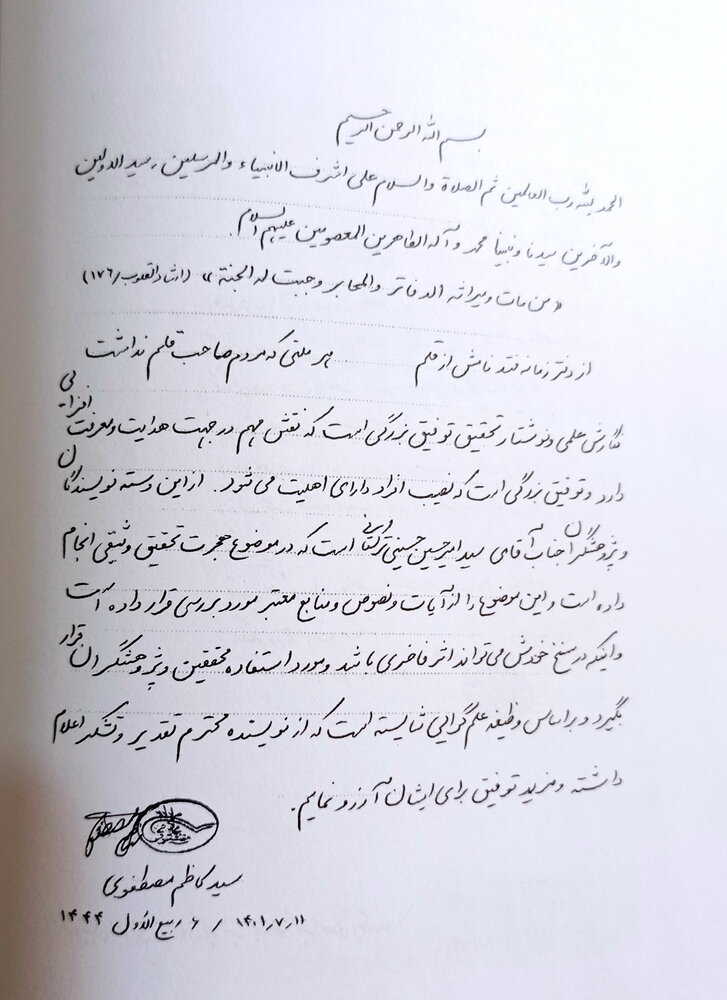 بسم الله الرحمن الرحیم
الحمد لله رب العالمین ثم الصلاة والسلام علی اشرف الانبیاء والمرسلین، سید الاولین
والآخرین سیدنا ونبینا محمد وآله الطاهرین المعصومین علیهم السلام.
«من مات ومیراثه الدفاتر والمحابر وجبت له الجنة» (ارشاد القلوب/۱۷۶)
از دفتر زمانه فتد نامش از قلم هر ملتی که مردم صاحب قلم نداشت
نگارش علمی ونوشتار تحقیق توفیق بزرگی است که نقش مهم در جهت هدایت ومعرفت افزایی
دارد وتوفیق بزرگی است که نصیب افراد دارای اهلیت می شود. از این دسته نویسندگان
وپژوهشگران جناب آقای سید امیرحسین حسینی است که در موضوع هجرت تحقیق وثیقی انجام
داده است واین موضوع را از آیات ونصوص ومنابع معتبر مورد بررسی قرار داده است
واینکه در سنخ خودش می تواند اثر فاخری باشد ومورد استفاده محققین وپژوهشگران قرار
بگیرد وبراساس وظیفه علم گرایی شایسته است که از نویسنده محترم تقدیر وتشکر اعلام
داشته ومزید توفیق برای ایشان آرزو نمایم.
سید کاظم مصطفوی
۱۴۰۱٫۷٫۱۱ / ۶ ربیع الأول ۱۴۴۴